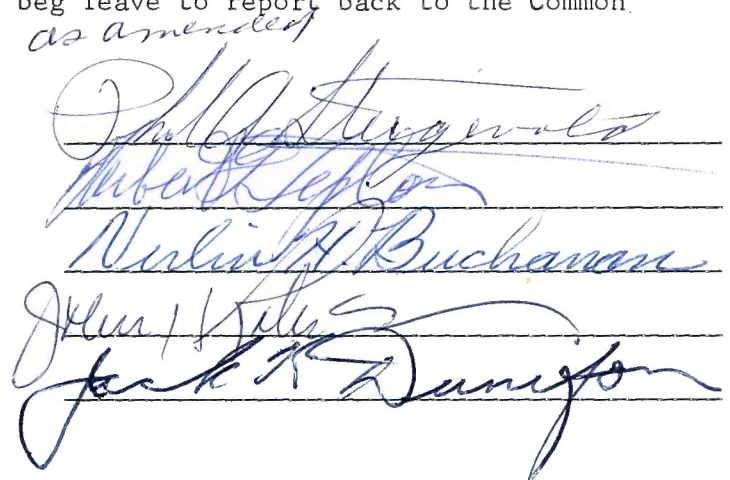 beg leave to report back to the Common
as amended
Phil A Fitzgerald
Herbert
Verlin H. Buchanan
John
Jack K Dunifon